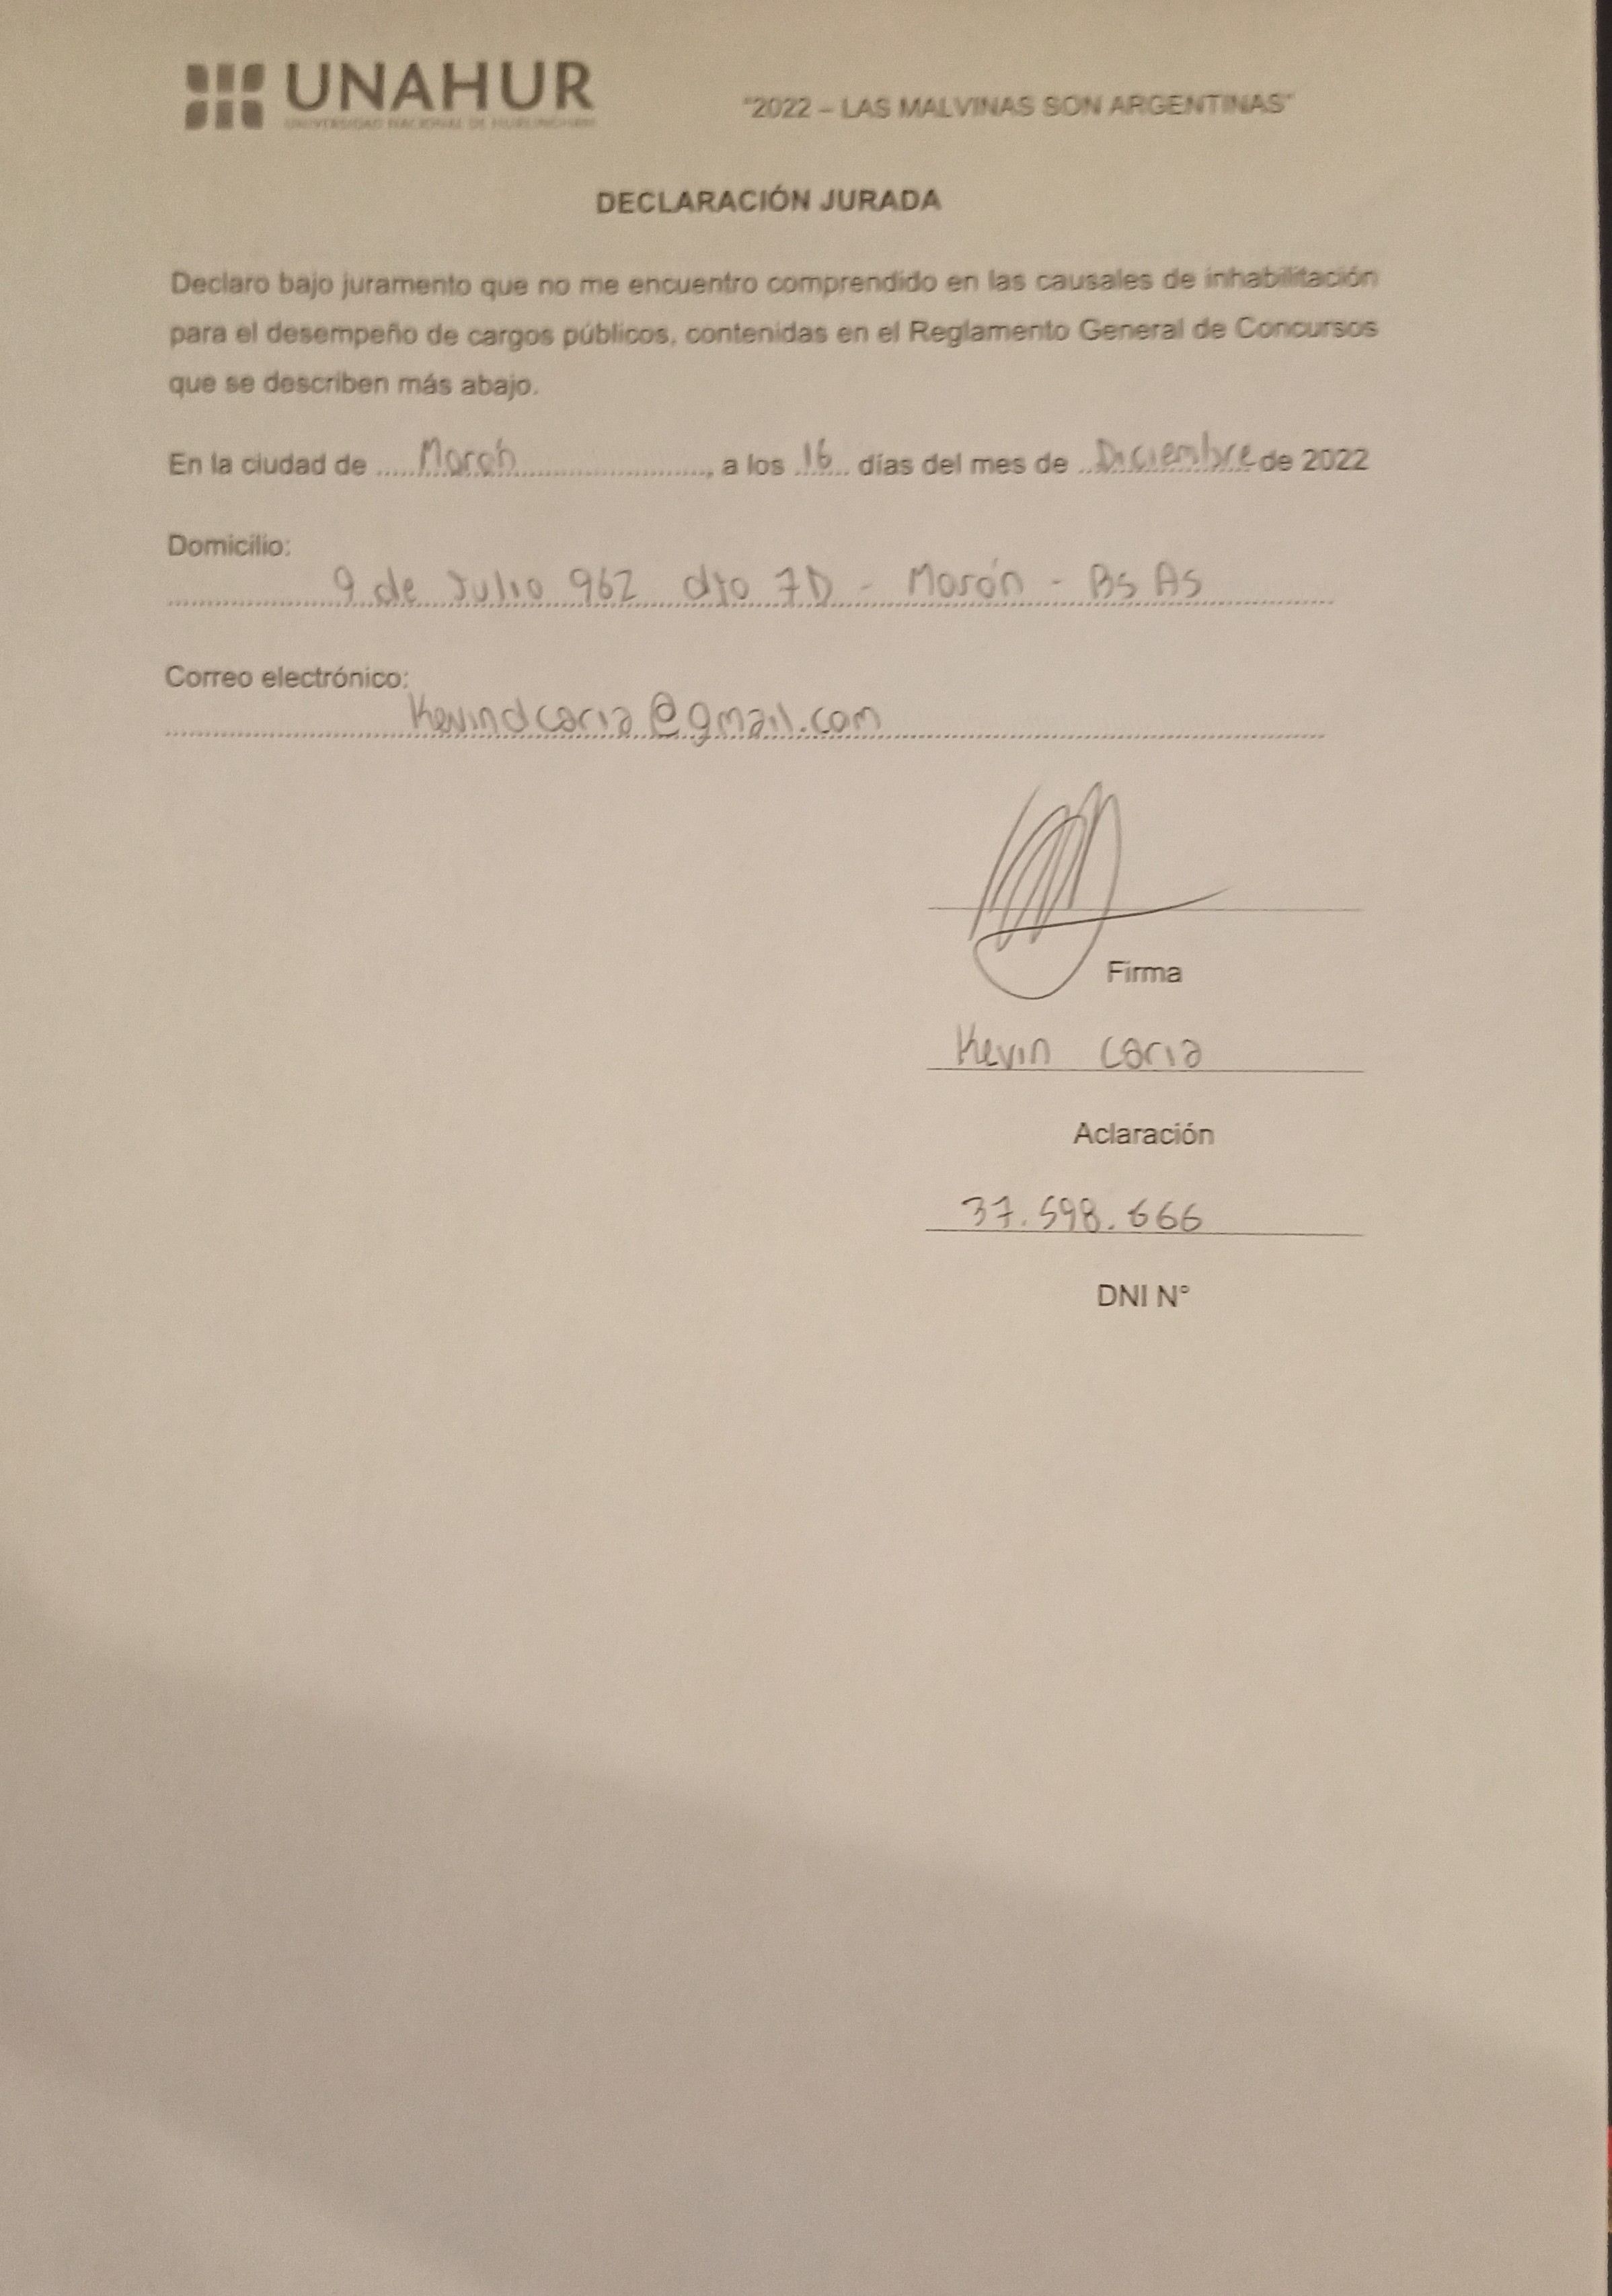 UNAHUR
UNIVERSIDAD NACIONAL DE HURLINGHAM
"2022 – LAS MALVINAS SON ARGENTINAS"
DECLARACIÓN JURADA
Declaro bajo juramento que no me encuentro comprendido en las causales de inhabilitación
para el desempeño de cargos públicos, contenidas en el Reglamento General de Concursos
que se describen más abajo.
En la ciudad de Morón, a los 16 días del mes de Diciembre de 2022
Domicilio:
9 de Julio 962 dto 7D - Morón - Bs As
Correo electrónico:
Kevindcaria@gmail.com
Firma
Kevin Caria
Aclaración
37.598.666
DNI N°